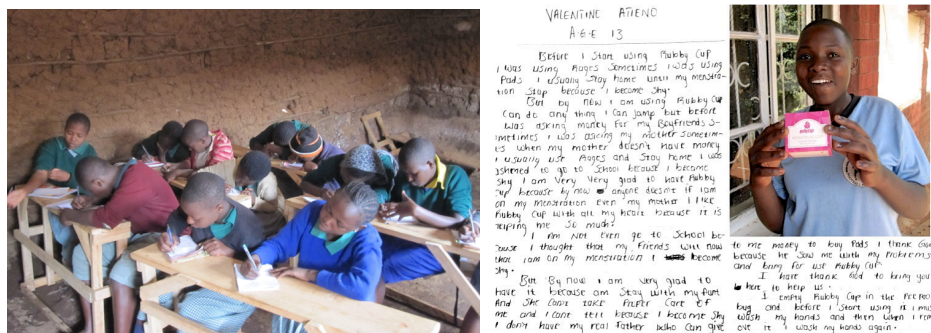 VALENTINE ATIENO
AGE 13
Before I start using Rubby Cup
I was using Rages Sometimes I was using
Pads I usually stay home until my menstra-
tion stop because I become shy.
But by now I am using Rubby Cup
Can do any thing I can jump but before
was asking money for my Boyfriends S-
metimes I was asking my mother sometim-
es when my mother doesn't have money
I usually use Rages and stay home I was
ashened to go to school because I become
shy I am very very glad to have Rubby
Cup because by now anyone doesnt if iam
on my menstration Even my mother I like
Rubby Cup with all my heart because it is
helping me so much.
I Am Not even go to school be-
cause I thought that my friends will now
that iam on my menstration I become
shy.
But By now I am very glad to
have it because am stay with my
And she cant take Proper Care of
me and I cant tell because I become shy
I don't have my real father who can give
to me money to buy Pads I thank God
because he saw me with my Problems
and bring for us Rubby Cup
I have thank God to bring you
here to help us.
I empty Rubby Cup in the
and before I start using it I mus
wash my hands and then when I rem
ove it I wash my hands again.